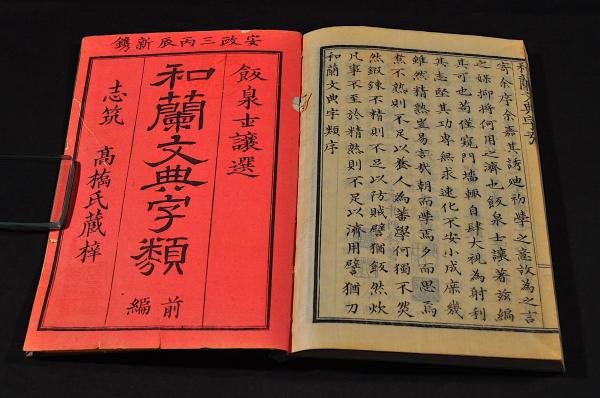 安政三丙辰新鐫
飯泉士讓選
和蘭文典字類
前編
志筑 髙橋氏藏梓
和蘭文典字類序
凡事不至於精熟則不足以濟用譬猶刀
然鍛錬不精則不足以防賊譬猶飯然炊
煮不熟則不足以養人為善學何獨不然
雖然精熟豈易言哉朝而學焉夕而思焉
其志堅其功專無求速化不安小成庶幾
其可也苟僅窺門墻輒自肆大視為射利
之媒抑將何用之濟也飯泉士讓著茲編
寄余序余嘉其誘廸初學之意故為之言